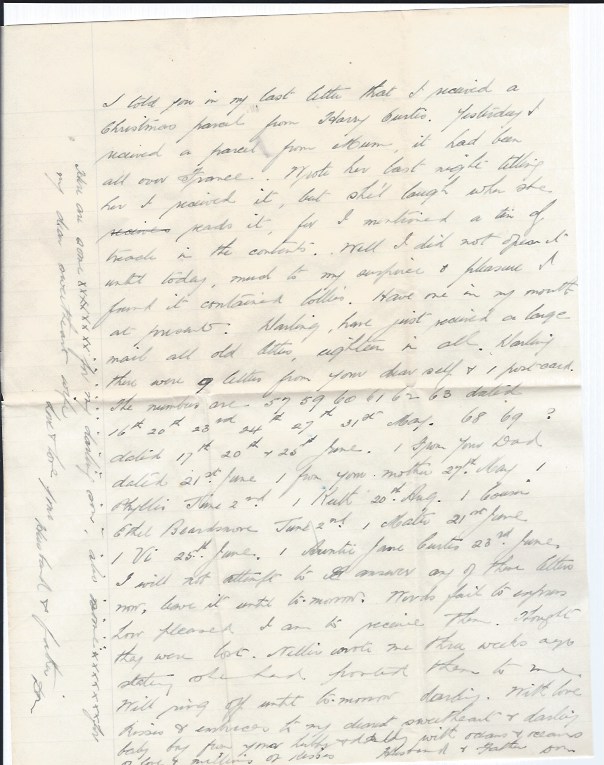 I told you in my last letter that I received a
Christmas parcel from Harry Curtis. Yesterday I
received a parcel from Mum, it had been
all over France. Wrote her last night telling
her I received it, but she'll laugh when she
reads it, for I mentioned a tin of
treacle in the contents. Well I did not open it
until today, much to my surprise & pleasure I
found it contained lollies. Have one in my mouth
at present. Darling, have just received a large
mail all old letters, eighteen in all. Darling
there were 9 letters from your dear self & 1 post card.
The numbers are 57 59 60 61 62 63 dated
16th 20th 23rd 24th 27th 31st May. 68 69 ?
dated 17th 20th & 25th June. 1 from your Dad
dated 21st June 1 from your mother 27th May 1
Phyllis June 2nd 1 Keith 20th Aug. 1 Cousin
Ethel Beardsmore June 2nd 1 Mater 21st June
1 Vi 25th June. 1 Auntie Jane Curtis 23rd June.
I will not attempt to answer any of these letters
now, leave it until to-morrow. Words fail to express
how pleased I am to receive them. Thought
they were lost. Nellie wrote me three weeks ago
stating she had posted them to me.
Will ring off until to-morrow darling. With love
Kisses & embraces to my dearest sweetheart & darling
baby boy from your hubby & daddy with oceans & oceans
of love & millions of kisses Husband & Father
Here are some xxxxxx for my darling son, also some xxxxxx for
my dear sweetheart wife
love your Husband & father